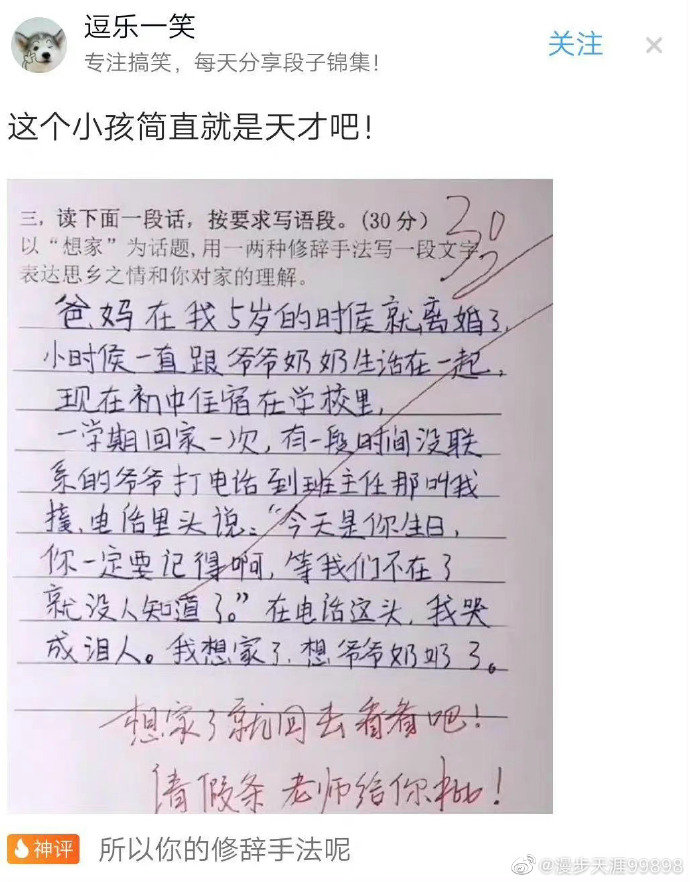 逗乐一笑
专注搞笑，每天分享段子锦集！
关注
×
这个小孩简直就是天才吧！
三，读下面一段话，按要求写语段。(30分)
30
以“想家”为话题，用一两种修辞手法写一段文字，
表达思乡之情和你对家的理解。
爸妈在我5岁的时侯就离婚了，
小时侯一直跟爷爷奶奶生活在一起，
现在初中住宿在学校里，
一学期回家一次，有一段时间没联
系的爷爷打电话到班主任那叫我
接，电话里头说：“今天是你生日，
你一定要记得啊，等我们不在了
就没人知道了。”在电话这头，我哭
成泪人。我想家了，想爷爷奶奶了。
想家了就回去看看吧！
请假条老师给你批！
神评
所以你的修辞手法呢
@漫步天涯99898